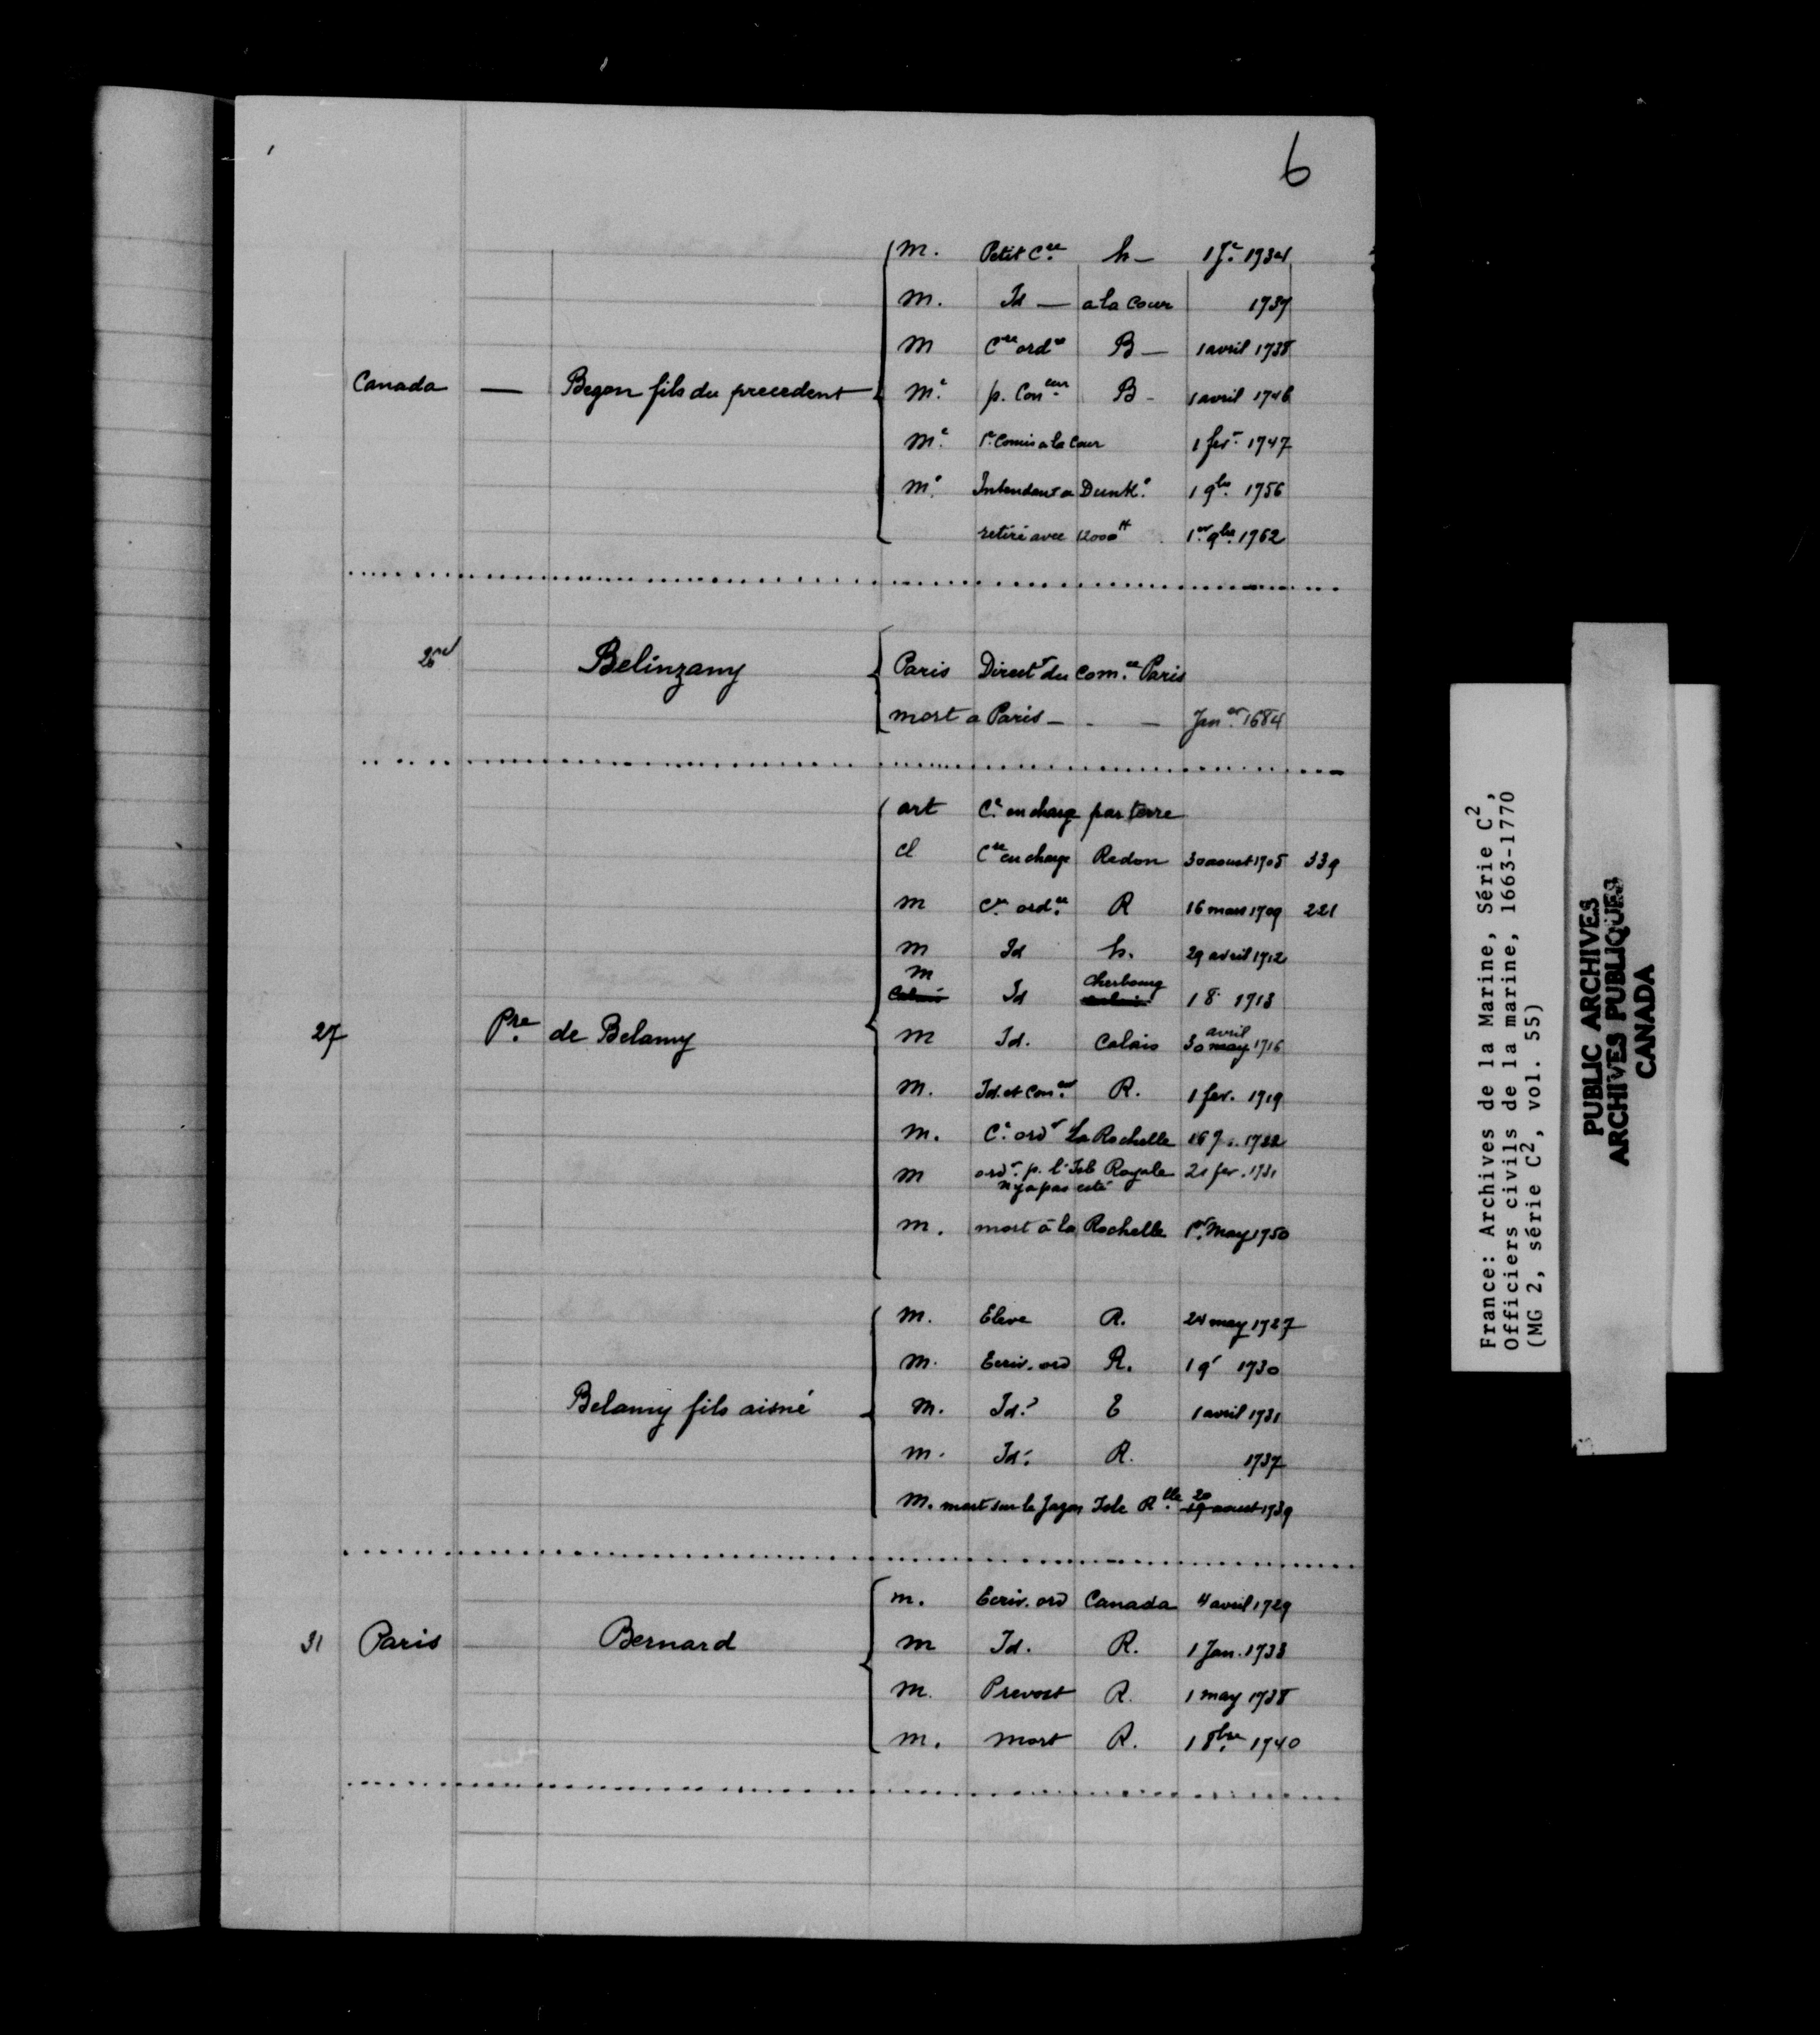 6
m. Petit C.re h— 1 J.r 1734
m. Id — a la Cour 1737
m C.re ord.re B — 1 avril 1738
Canada — Begon fils du precedent m.e p. Con.eur B - 1 avril 1746
m.e 1.r Comis a la Cour 1 fev.r 1747
m.e Intendant a Dunk.e 1 9.bre 1756
retiré avec 12000# 1.er 9.bre 1762
26 Belinzany Paris Direct.r du Com.ce Paris
mort a Paris — - — Jan.er 1684
art C.e en charge par terre
cl C.re en charge Redon 30 aoust 1705 339
m C.re ord.re R 16 mars 1709 221
m Id h. 29 avril 1712
m Id Cherbourg 1 8. 1713
27 P.re de Belamy m Id. Calais 30 avril may 1716
m. Id. et Con.eur R. 1 fev. 1719
m. C.e ord.r La Rochelle 16 1722
m ord.r p. l'Isle Royale 21 fev. 1731
n'y a pas esté
m. mort à la Rochelle 1.er May 1750
m. Eleve R. 24 may 1727
m. Ecriv. ord R. 1 9.r 1730
Belamy fils aisné m. Id. E 1 avril 1731
m. Id. R. 1737
m. mort sur le Jazon Isle R.lle 20 19 aoust 1739
m. Ecriv. ord Canada 4 avril 1729
31 Paris Bernard m Id. R. 1 Jan. 1733
m. Prevost R. 1 may 1738
m. mort R. 1 8.bre 1740
France: Archives de la Marine, Série C2,
Officiers civils de la marine, 1663-1770
(MG 2, série C2, vol. 55)
PUBLIC ARCHIVES
ARCHIVES PUBLIQUES
CANADA